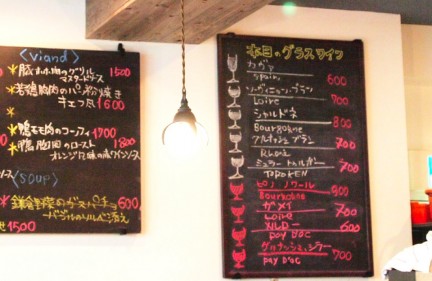 <viand>
豚ホホ肉のグリル 1500
マスタードソース
若鶏胸肉のパン粉焼き
チェコ風 1600
鴨モモ肉のコーフィ 1900
鴨胸肉のロースト 1800
オレンジ風味の赤ワインソース
<soup>
600
バジルのソルベ添え
1500
本日のグラスワイン
カヴァ
Spain 600
ソーヴィニョン・ブラン
Loire 700
シャルドネ
Bourgogne 800
グルナッシュ ブラン
Rhone 700
ミュラートゥルガー
TOROKEN 700
ピノ・ノワール 900
Bourgogne
ガメイ 700
Loire
メルロー 600
pay D'OC
グルナッシュ、シラー 700
pay D'OC